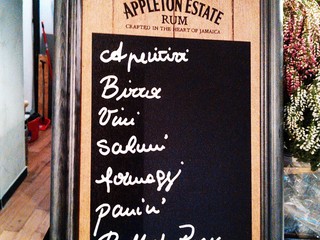 APPLETON ESTATE
RUM
CRAFTED IN THE HEART OF JAMAICA
Aperitivi
Birra
Vini
Salumi
formaggi
panini